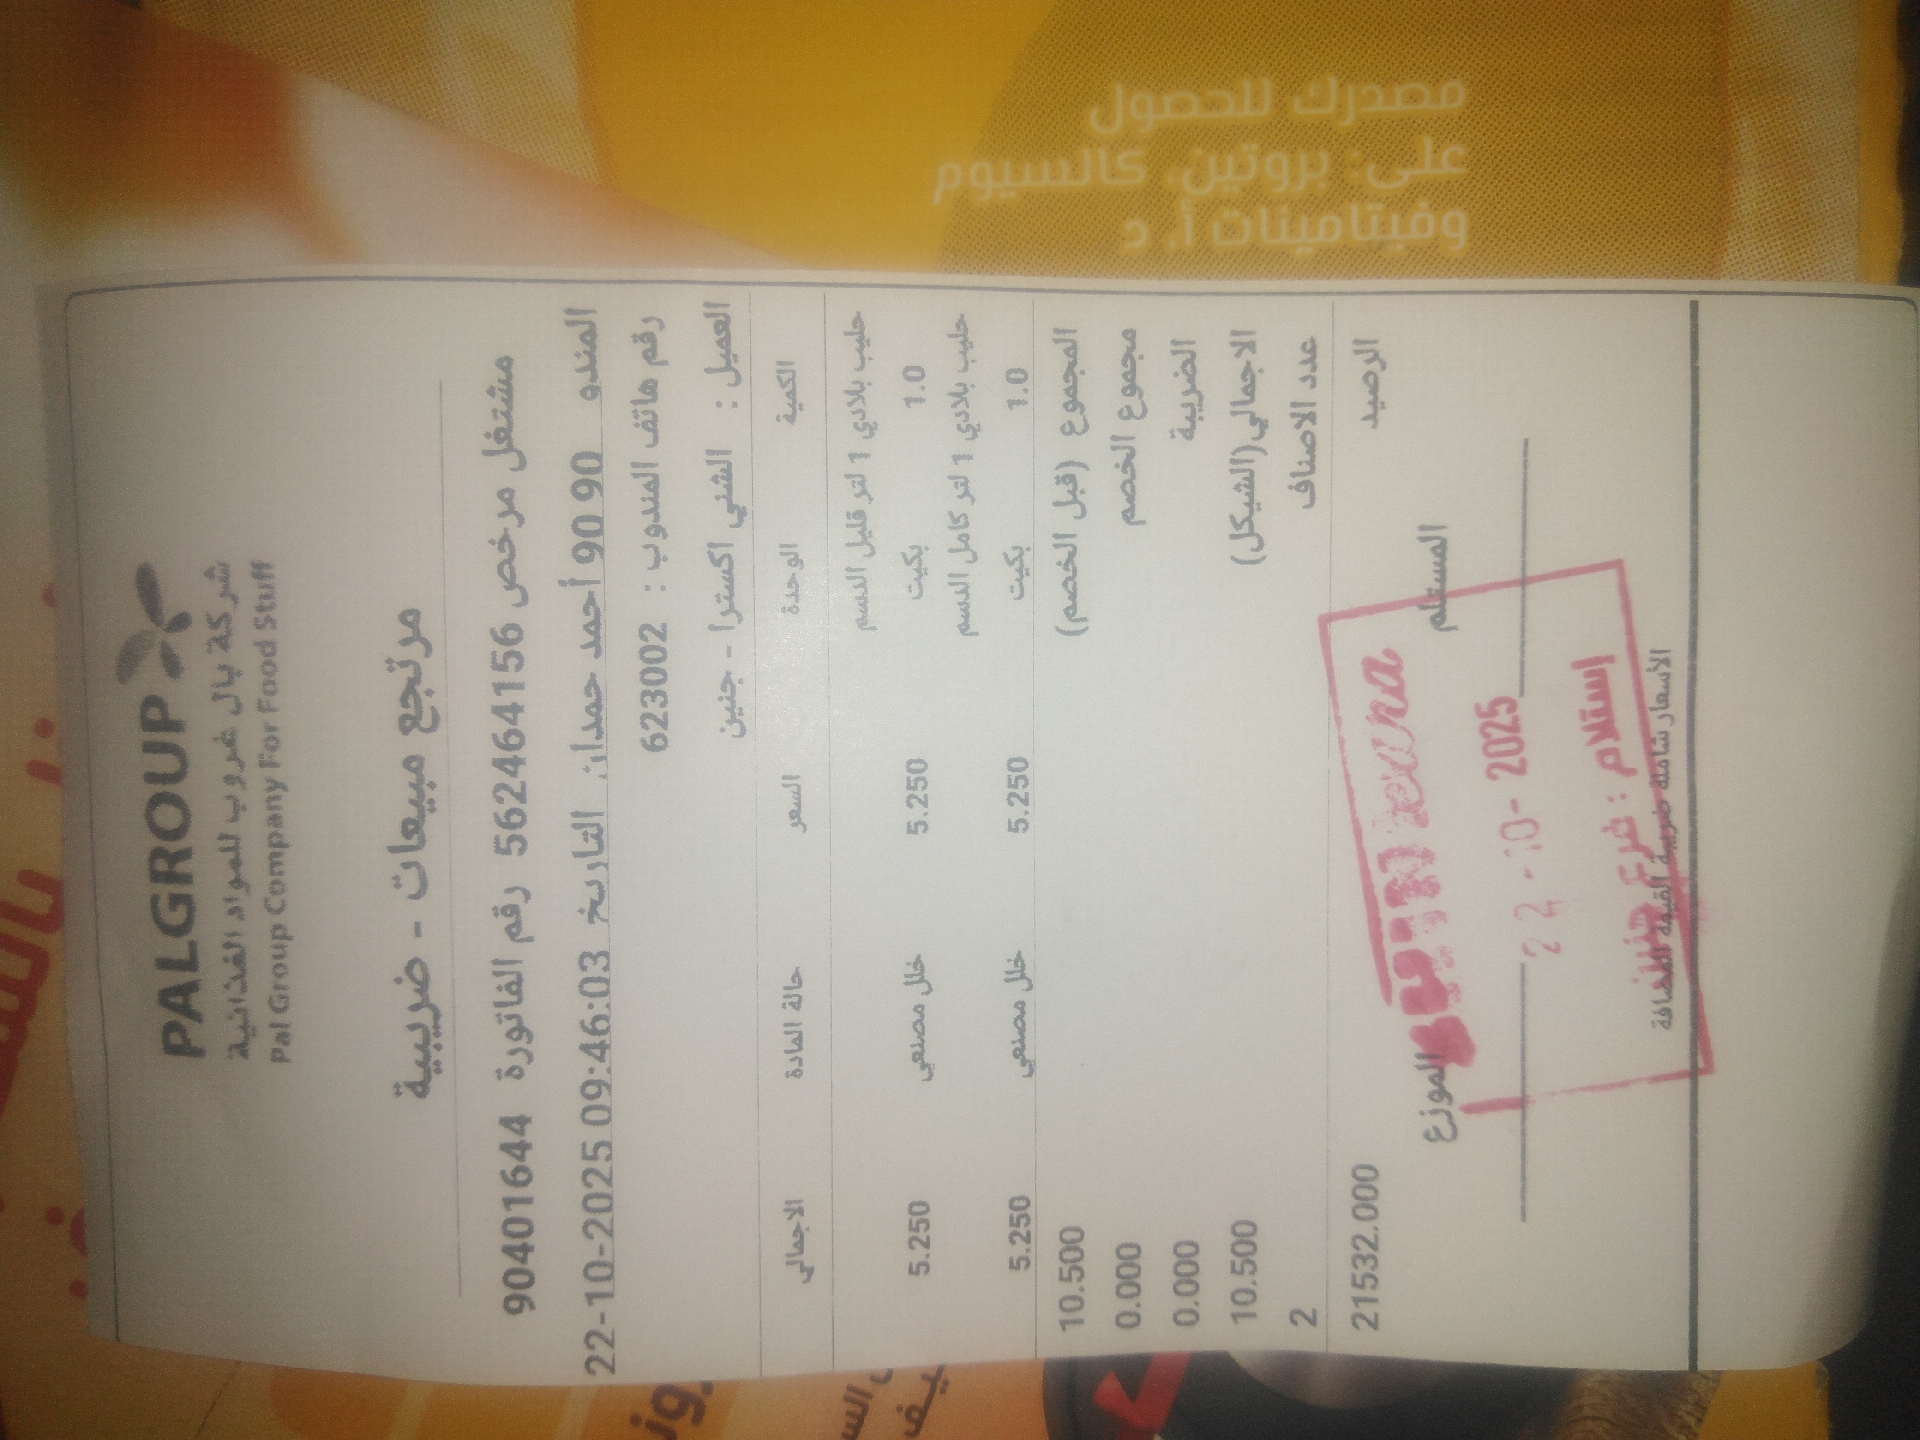 مصدرك للحصول
على: بروتين، كالسيوم
وفيتامينات أ، د
PALGROUP
شركة بال غروب للمواد الغذائية
Pal Group Company For Food Stuff
مرتجع مبيعات - ضريبية
مشتغل مرخص 562464156 رقم الفاتورة 90401644
المندو 90 90 أحمد حمدان التاريخ 22-10-2025 09:46:03
رقم هاتف المندوب : 623002
العميل : الشني اكسترا - جنين
الكمية الوحدة السعر حالة المادة الاجمالي
حليب بلادي 1 لتر قليل الدسم
1.0 بكيت 5.250 خلل مصنعي 5.250
حليب بلادي 1 لتر كامل الدسم
1.0 بكيت 5.250 خلل مصنعي 5.250
المجموع (قبل الخصم) 10.500
مجموع الخصم 0.000
الضريبة 0.000
الاجمالي(الشيكل) 10.500
عدد الاصناف 2
الرصيد 21532.000
المستلم الموزع
22-10-2025
إستلام : فرع جنين
الأسعار شاملة ضريبة القيمة المضافة